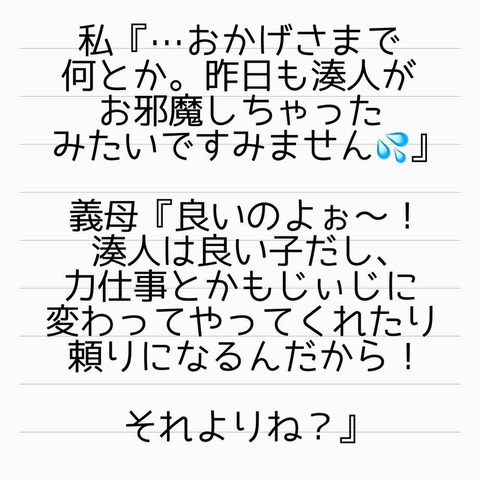 私『…おかげさまで
何とか。昨日も湊人が
お邪魔しちゃった
みたいですみません💦』
義母『良いのよぉ〜！
湊人は良い子だし、
力仕事とかもじぃじに
変わってやってくれたり
頼りになるんだから！
それよりね？』